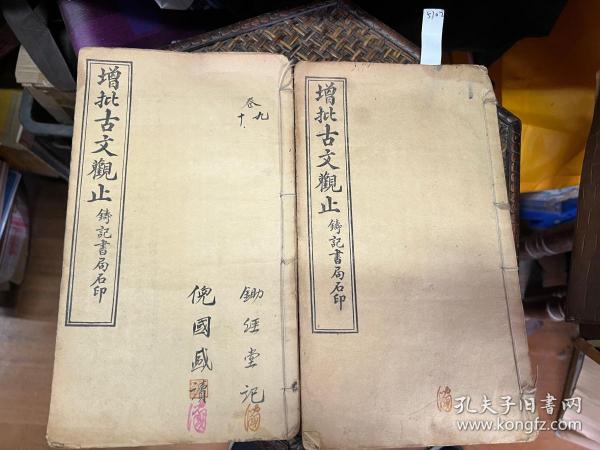 增批古文觀止 鋳記書局石印
卷九
十
鋤經堂記
倪國盛讀
增批古文觀止 鋳記書局石印
5102
孔夫子旧书网
www.kongfz.com